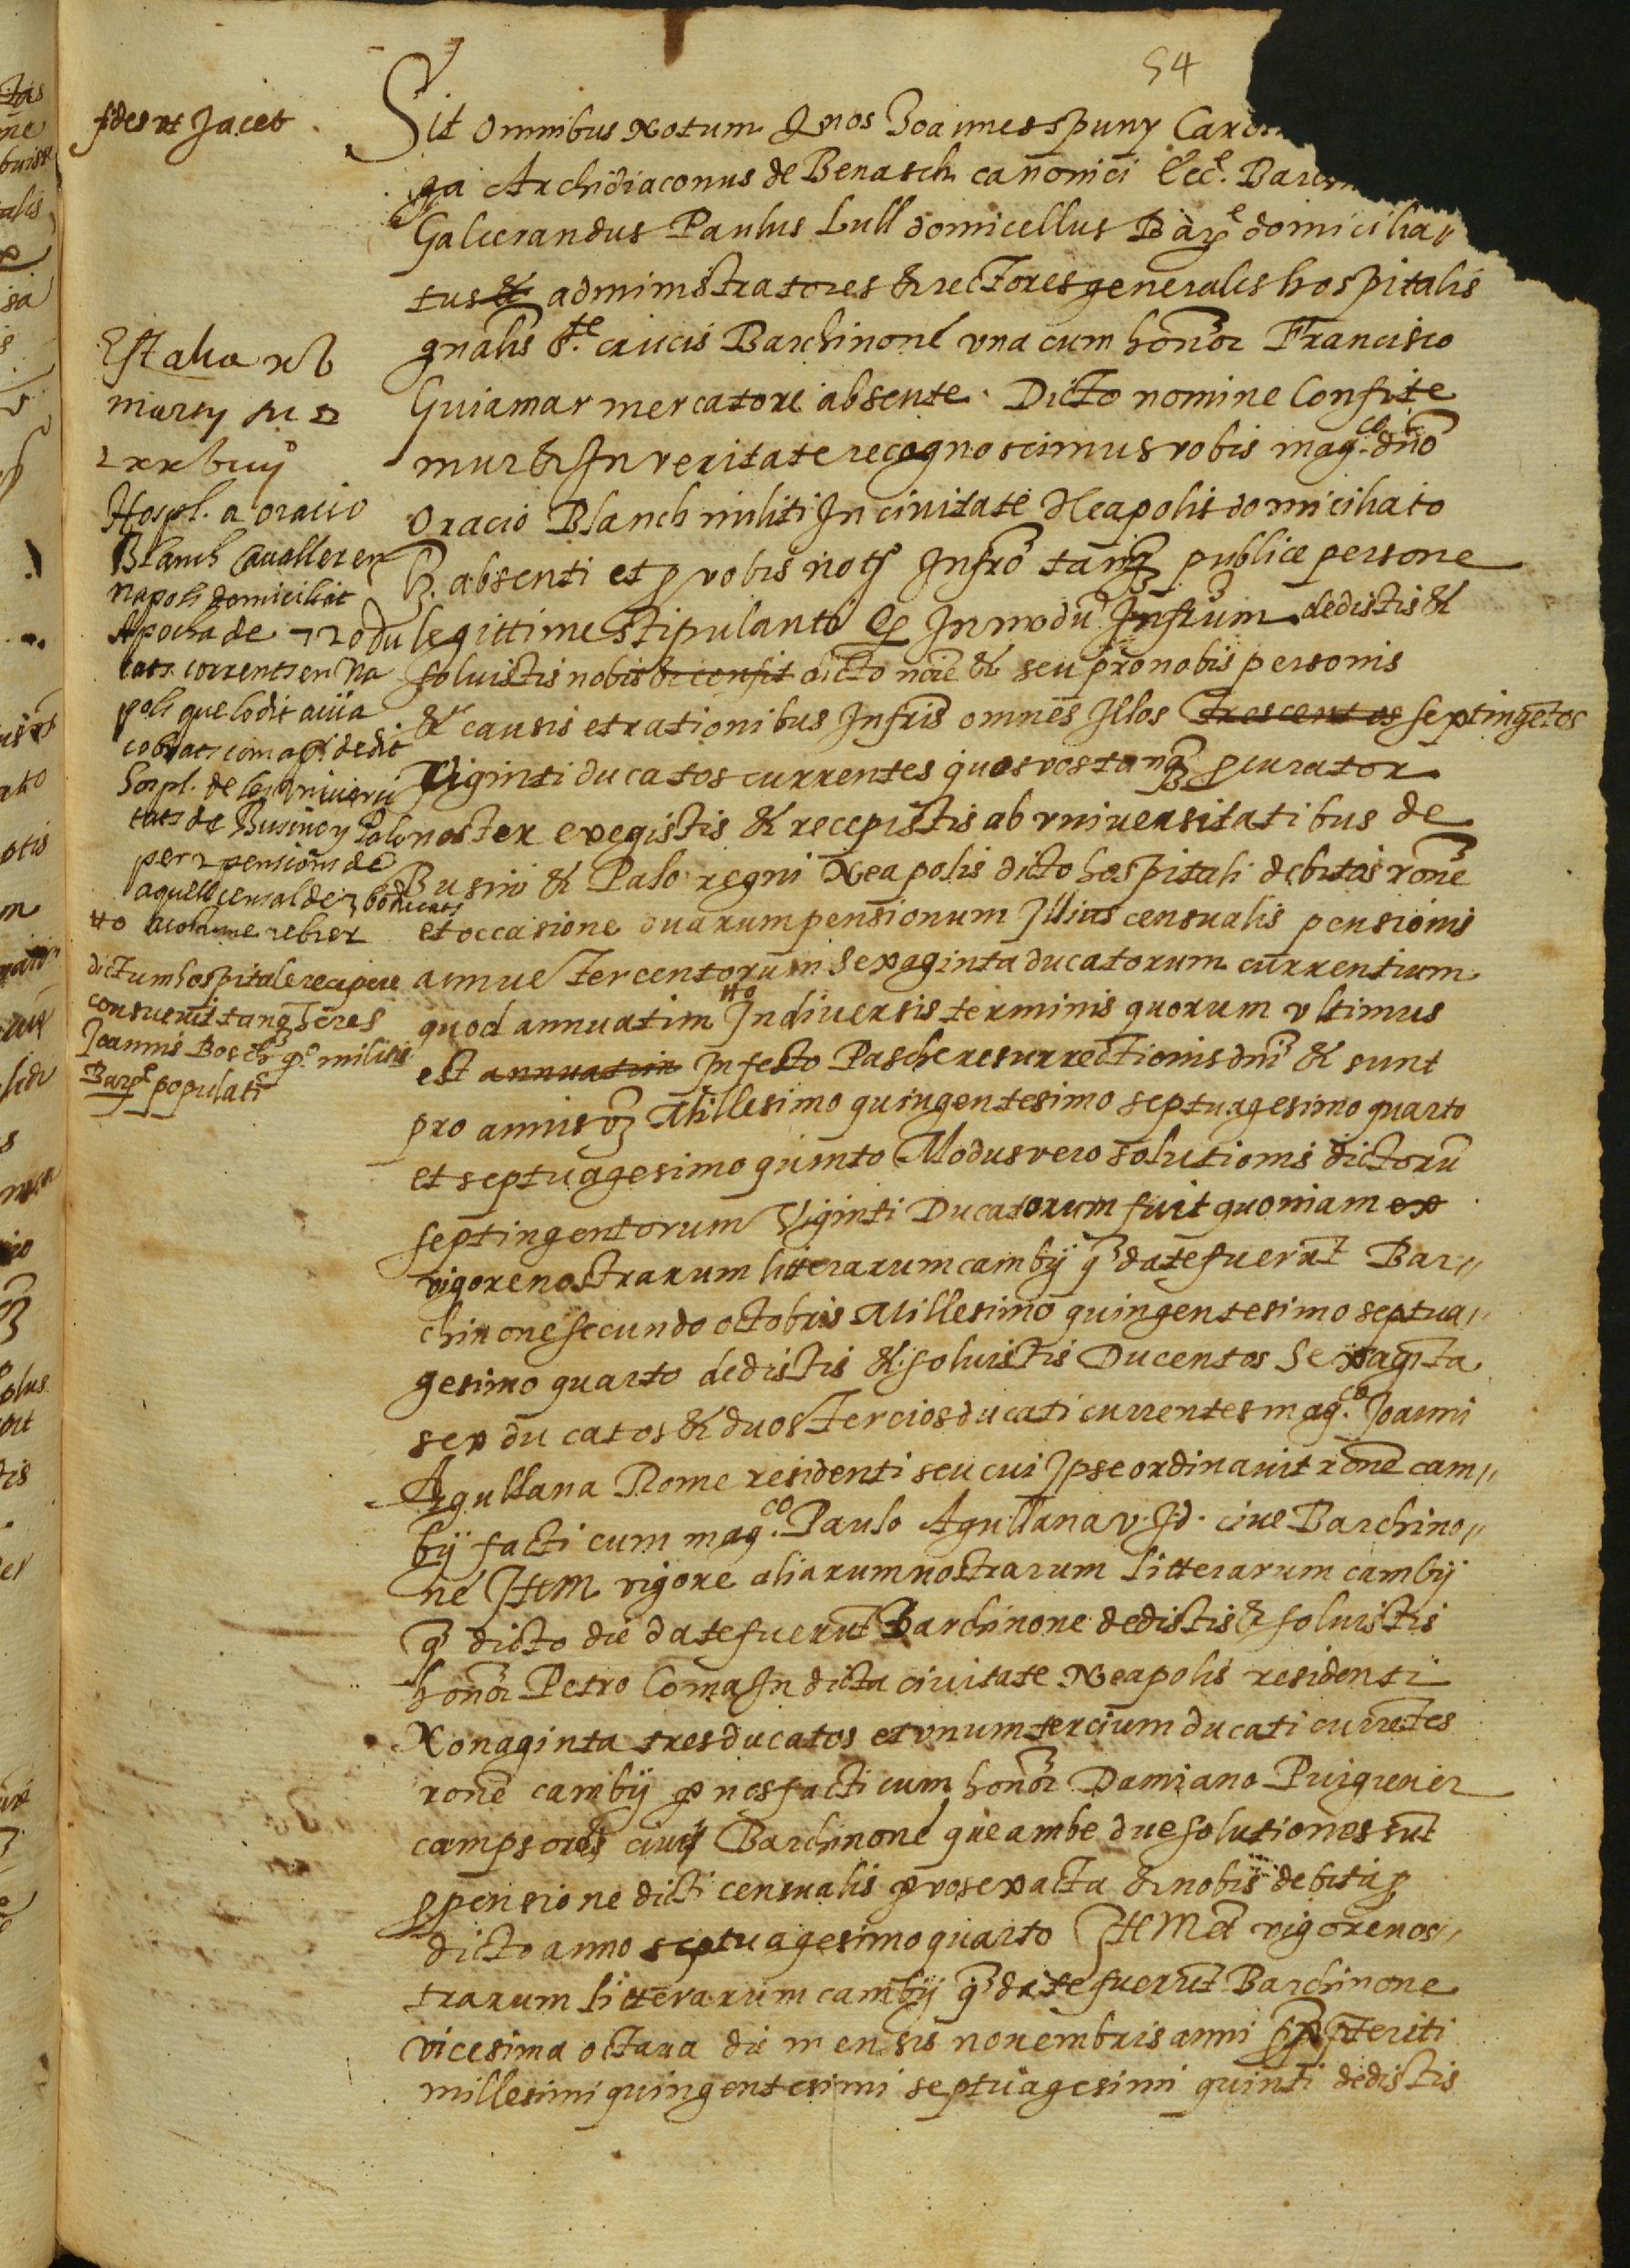 54
Sit omnibus Notum Q nos Joannes spuny
ga Archidiaconus de Benasch canonici Ecce.
Galcerandus Paulus Lull domicellus Barᵉ domicilia
tus & administratores & rectores generales hospitalis
gnalis Sᵗᵉ crucis Barchinone vna cum honor Francisco
Guiamar mercatore absente. Dicto nomine Confite
mur & In veritate recognoscimus vobis magᶜᵒ. dno
Oracio Blanch militi In ciuitate Neapolis domiciliato
absenti et p vobis notº Infro tanq publice persone
legittime stipulanti Q In modu Infrum dedistis &
soluistis nobis & confit dicto noie & seu pro nobis personis
& causis et rationibus Infris omnes Illos trescentos septingetos
Viginti ducatos currentes quos vos tanq pcurator
noster exegistis & recepistis ab vniuersitatibus de
Busini & Palo regni Neapolis dicto hospitali debitos rone
et occasione duarum pensionum Illius censualis pensionis
annue Tercentorum Sexaginta ducatorum currentium
quod annuatim In diuersis terminis quorum vltimus
est annuatim In festo Pasche resurrectionis dni & sunt
pro annis Millesimo quingentesimo septuagesimo quarto
et septuagesimo quinto Modus vero solutionis dictoru
septingentorum Viginti Ducatorum fuit quoniam ex
vigore nostrarum litterarum cambij q date fuerut Bar
chinone secundo octobris Millesimo quingentesimo septua
gesimo quarto dedistis & soluistis Ducentos Sexaginta
sex ducatos & duos Tercios ducati currentes magᶜᵒ. Joanni
Agullana Rome residenti seu cui Ipse ordinauit rone cam
bij facti cum magᶜᵒ. Paulo Agullana v. J. d. ciue Barchino
ne Item vigore aliarum nostrarum litterarum cambij
q dicto die date fuerut Barchinone dedistis & soluistis
honor Petro Coma In dicta ciuitate Neapolis residenti
Nonaginta tres ducatos et vnum tercium ducati curretes
rone cambij p nos facti cum honor Damiano Puigvener
campsore ciue Barchinone que ambe due solutiones sut
p pensione dicti censualis p vos exacta & nobis debita p
dicto anno septuagesimo quarto Item vigore nos
trarum litterarum cambij q date fuerut Barchinone
vicesima octaua die mensis nouembris anni pteriti
millesimi quingentesimi septuagesimi quinti dedistis
fides ut Jacet
Est alia
Hospl. a oracio
Blanch Caualler en
Napols domiciliat
Apocha de 720 du
cats corrents en Na
pols que lo dit auia
cobrats com a p. de dit
hospl. de les vniuersi
tats de Busino y Palo
per 2 pensions de
aquell censal de 360 ducats
dictum hospitale recipere
consueuit tanq heres
Joannis Bosch q. militis
Barᵉ populati